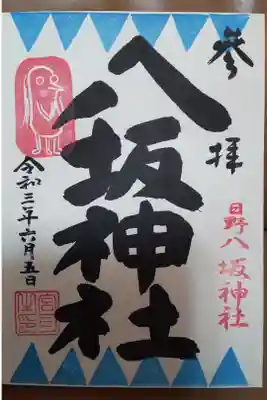 参拝
日野八坂神社
八坂神社
令和三年六月五日